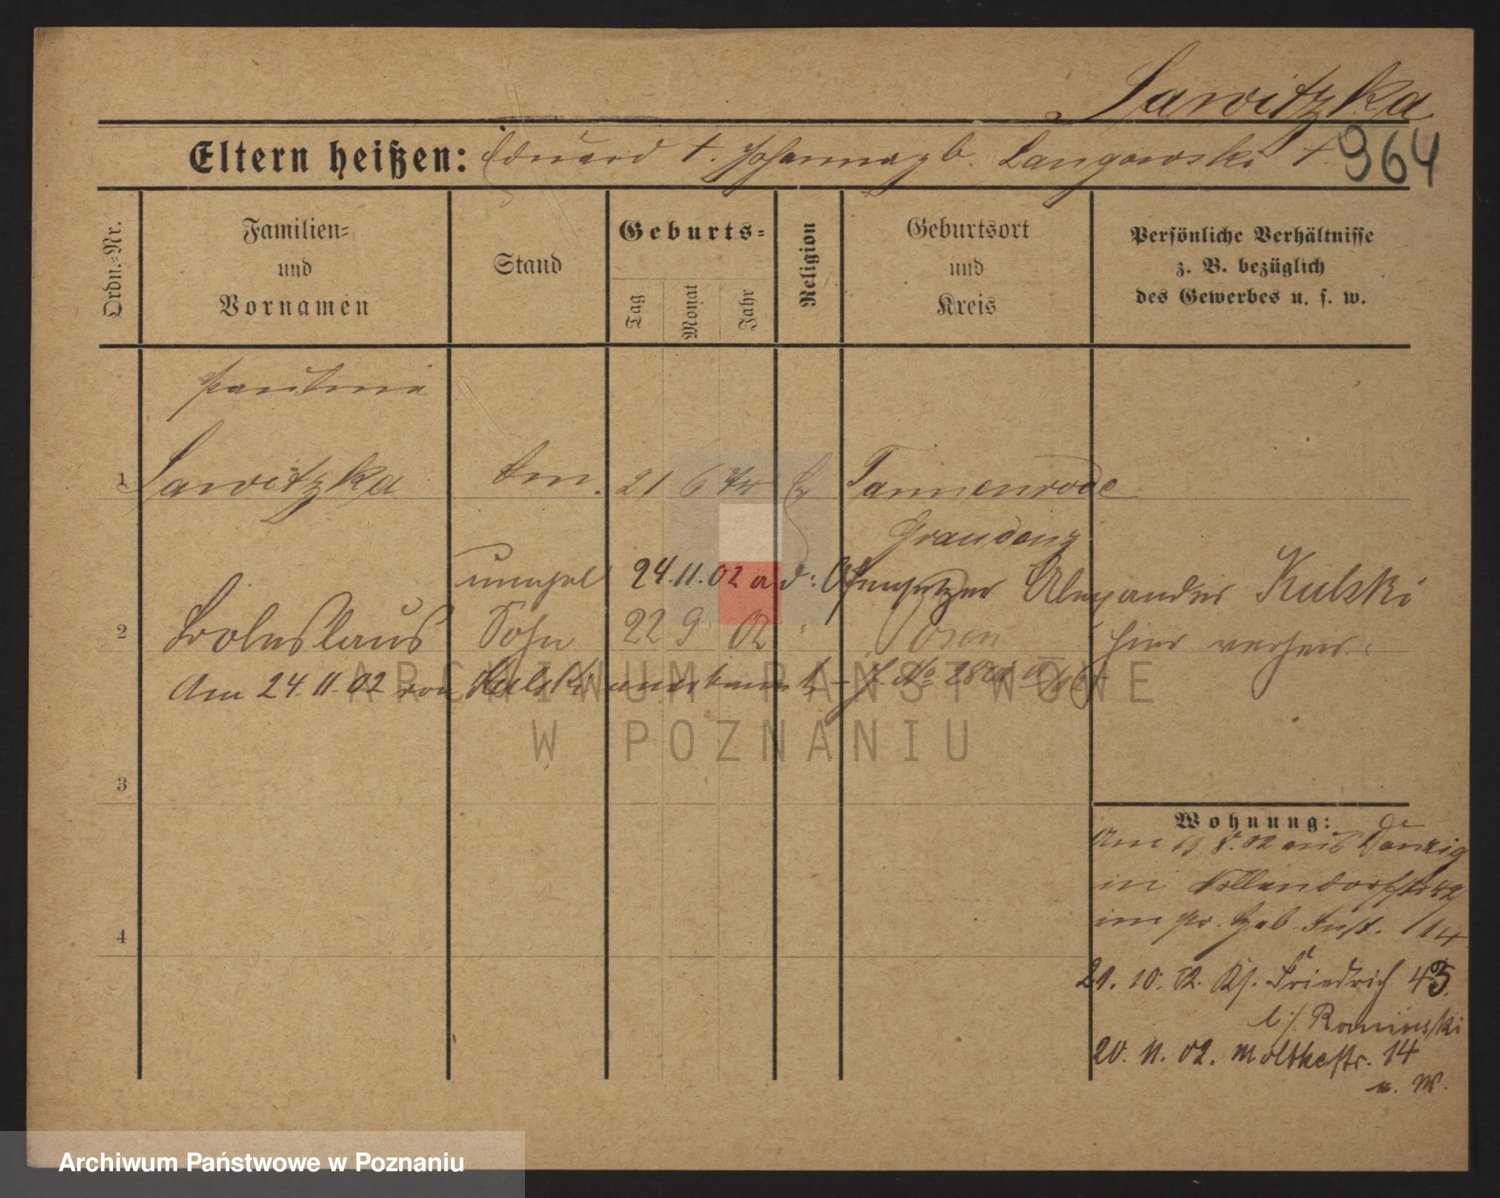 Sawitzka
964
Eltern heißen: Eduard †. Johanna gb. Langowski †.
Ordn.-Nr.
Familien- und Vornamen
Stand
Geburts-
Tag
Monat
Jahr
Religion
Geburtsort und Kreis
Persönliche Verhältnisse
z. B. bezüglich
des Gewerbes u. s. w.
Pauline
1 Sawitzka 21 6 Tannenrode
Graudenz
unehel 24.11.02 a. d. Ofensetzer Alexander Kulski
2 Boleslaus Sohn 22 9 02 " Posen hier verheir.
Am 24.11.02 von Kulski anerkannt J. No
3
4
Wohnung:
Am 8.02 aus Danzig
in Nollendorfstr
im pr. Heb. Inst.
21. 10. 02. Kl. Friedrich 43.
b/ Rominski
20. 11. 02. Moltkestr. 14
n. W.
ARCHIWUM PAŃSTWOWE
W POZNANIU
Archiwum Państwowe w Poznaniu